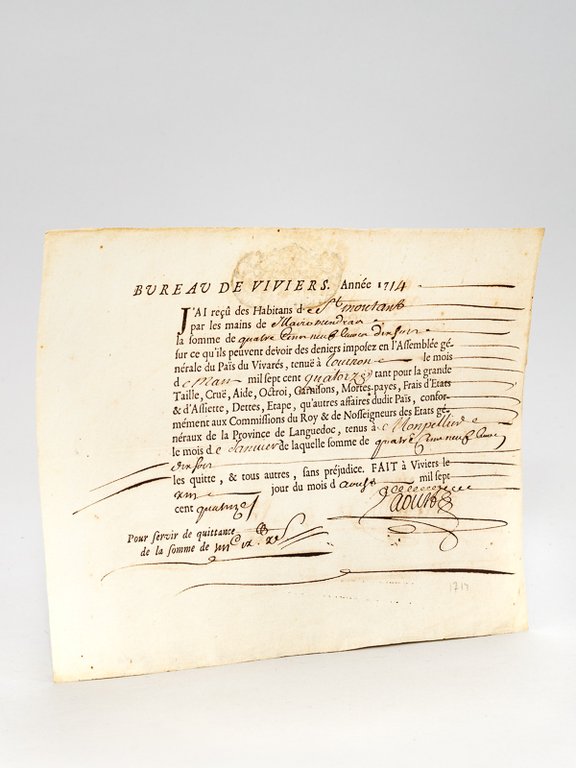 BUREAU DE VIVIERS. Année 1714
J'AI reçû des Habitans de St montant
par les mains de
la somme de quatre cens neuf livres dix sols
sur ce qu'ils peuvent devoir des deniers imposez en l'Assemblée gé-
nérale du Païs du Vivarés, tenuë à tournon le mois
de Mars mil sept cent quatorze tant pour la grande
Taille, Cruë, Aide, Octroi, Garnisons, Mortes-payes, Frais d'Etats
& d'Assiette, Dettes, Etape, qu'autres affaires dudit Païs, confor-
mément aux Commissions du Roy & de Nosseigneurs des Etats gé-
néraux de la Province de Languedoc, tenus à Monpellier
le mois de Janvier de laquelle somme de quatre cens neuf livres
dix sols
les quitte, & tous autres, sans préjudice. FAIT à Viviers le
jour du mois d'aoust mil sept
cent quatorze
Pour servir de quittance
de la somme de
1714